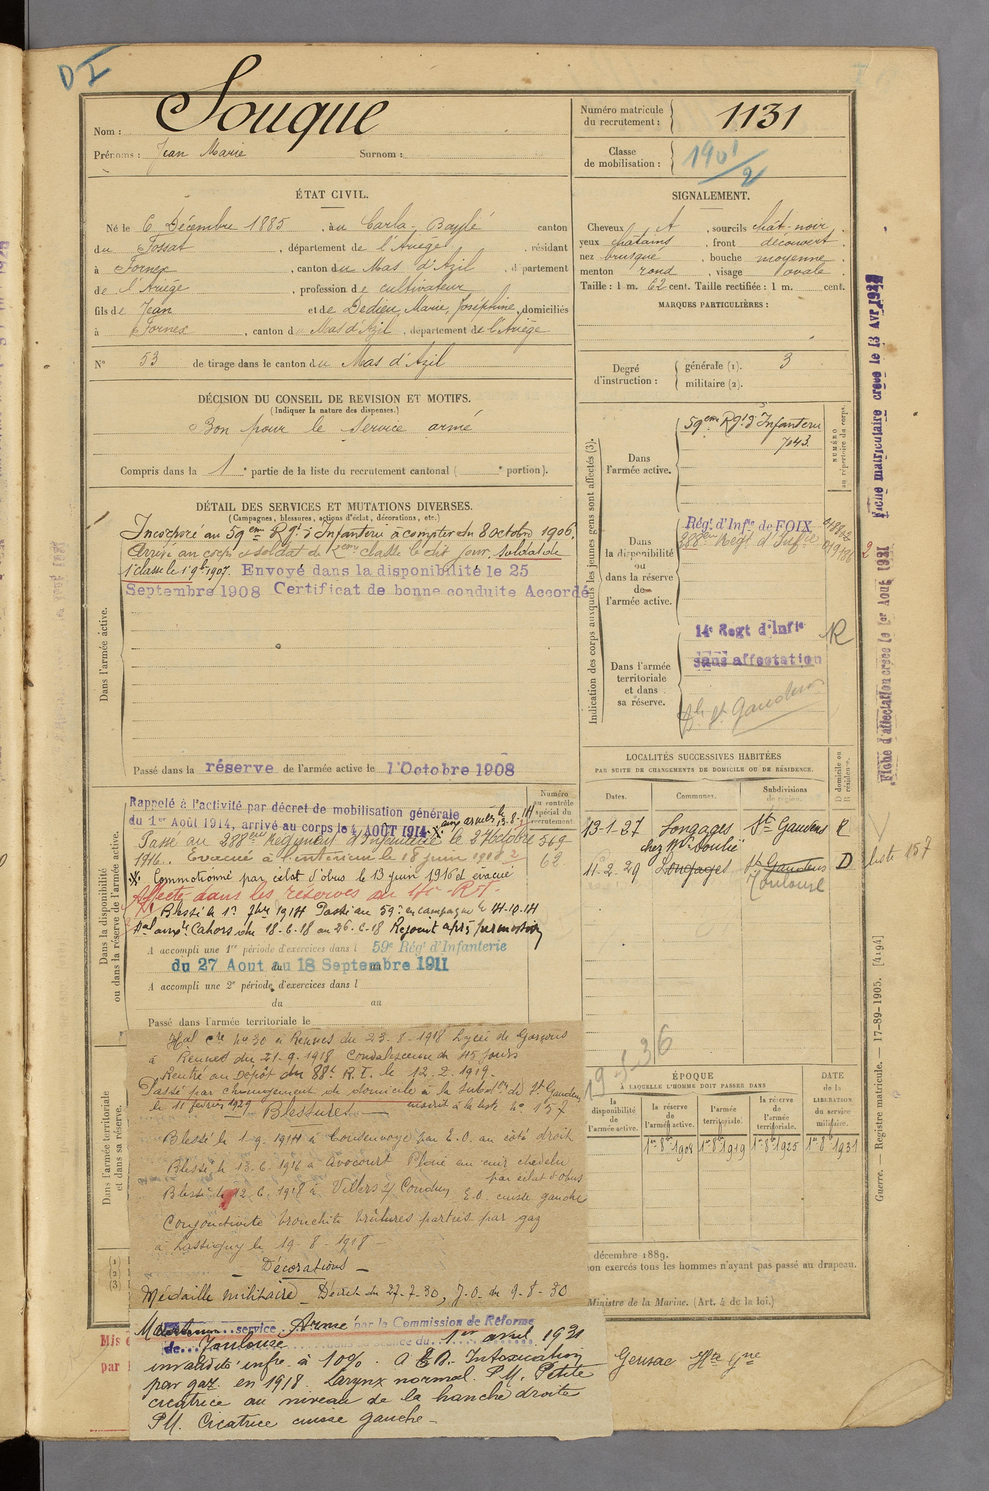 DI
Nom : Souque
Prénoms : Jean Marie Surnom :
Numéro matricule du recrutement : 1131
Classe de mobilisation : 1901/2
ÉTAT CIVIL.
Né le 6 Décembre 1885, à Carla-Bayle canton
du Fossat, département de l'Ariège, résidant
à Fornex, canton du Mas d'Azil, département
de l'Ariège, profession de cultivateur
fils de Jean et de Dedieu, Marie, Joséphine, domiciliés
à Fornex, canton du Mas d'Azil, département de l'Ariège
N° 53 de tirage dans le canton du Mas d'Azil
SIGNALEMENT.
Cheveux, sourcils chât-noir
yeux châtains, front découvert
nez brusque, bouche moyenne
menton rond, visage ovale
Taille : 1 m. 62 cent. Taille rectifiée : 1 m. cent.
MARQUES PARTICULIÈRES :
Degré d'instruction : générale (1). 3
militaire (2).
DÉCISION DU CONSEIL DE REVISION ET MOTIFS.
(Indiquer la nature des dispenses.)
Bon pour le service armé
Compris dans la 1e partie de la liste du recrutement cantonal ( e portion).
DÉTAIL DES SERVICES ET MUTATIONS DIVERSES.
(Campagnes, blessures, actions d'éclat, décorations, etc.)
Dans l'armée active.
Incorporé au 59eme Rgt d'Infanterie à compter du 8 octobre 1906.
Arrivé au corps et soldat de 2eme classe le dit jour, soldat de
1e classe le 1 9bre 1907. Envoyé dans la disponibilité le 25
Septembre 1908 Certificat de bonne conduite Accordé
Passé dans la réserve de l'armée active le 1 Octobre 1908
Indication des corps auxquels les jeunes gens sont affectés (3).
NUMÉRO au répertoire du corps.
Dans l'armée active.
59eme Rgt d'Infanterie
7043
Dans la disponibilité ou dans la réserve de l'armée active.
Régt d'Infie de FOIX
288eme Régt d'Infie
Dans l'armée territoriale et dans sa réserve.
14e Regt d'Infie
sans affectation
St Gaudens
Fiche matriculaire créée le 13 Avr 1928
Fiche d'affectation créée le 1er Aout 1921
Dans la disponibilité ou dans la réserve de l'armée active.
Numéro au contrôle spécial du recrutement
569
62
Rappelé à l'activité par décret de mobilisation générale
du 1er Août 1914, arrivé au corps le 4 AOUT 1914 X aux armées le 13-8-14
Passé au 288eme Régiment d'Infanterie le 27 octobre
1916. Evacué à l'intérieur le 18 juin 1918
X Commotionné par éclat d'obus le 13 juin 1916 et évacué
Affecté dans les réserves du 14e R.I.
Blessé le 1er 7bre 1914 Passé au 59e en campagne le 14-10-14
Hal compre Cahors du 18-6-18 au 26-6-18 Rejoint après permission
A accompli une 1re période d'exercices dans l 59e Régt d'Infanterie
du 27 Aout au 18 Septembre 1911
A accompli une 2e période d'exercices dans l
du au
Passé dans l'armée territoriale le
LOCALITÉS SUCCESSIVES HABITÉES
PAR SUITE DE CHANGEMENTS DE DOMICILE OU DE RÉSIDENCE.
Dates. Communes. Subdivisions de région. D domicile ou R résidence.
13-1-27 Longages St Gaudens R
chez Me Soulié
11-2-29 Longages St Gaudens D liste 157
Toulouse
19-5-36
Dans l'armée territoriale et dans sa réserve.
Hal cre No 30 à Rennes du 23-8-1918 Lycée de Garçons
à Rennes du 21-9-1918 Convalescence de 45 jours
Rentré au Dépôt du 88e R.I. le 12-2-1919.
Passé par changement de domicile à la subdon de St Gaudens
le 11 février 1929 inscrit à la liste No 157
Blessures
Blessé le 1-9-1914 à Consenvoye par E.O. au côté droit
Blessé le 13-6-1916 à Avocourt Plaie au cuir chevelu
par éclat d'obus
Blessé le 12-6-1918 à Villers s/ Coudun E.O. cuisse gauche
Conjonctivite bronchite brûlures parties par gaz
à Lassigny le 19-8-1918
Décorations
Médaille militaire Décret du 27-7-30, J.O. du 9-8-30
Maintenu service Armé par la Commission de Réforme
de Toulouse séance du 1er avril 1931
invalidité infre à 10%. A E.D. Intoxication
par gaz en 1918. Larynx normal. P.M. Petite
cicatrice au niveau de la hanche droite
P.M. Cicatrice cuisse gauche
ÉPOQUE
À LAQUELLE L'HOMME DOIT PASSER DANS
DATE de la LIBÉRATION du service militaire.
la disponibilité de l'armée active. la réserve de l'armée active. l'armée territoriale. la réserve de l'armée territoriale.
1er 8bre 1908 1er 8bre 1919 1er 8bre 1925 1er 8bre 1931
décembre 1889.
non exercés tous les hommes n'ayant pas passé au drapeau.
Ministre de la Marine. (Art. 4 de la loi.)
Mis e
par
Gensac Hte Gne
Guerre. — Registre matricule. — 17-89-1905. [4194]